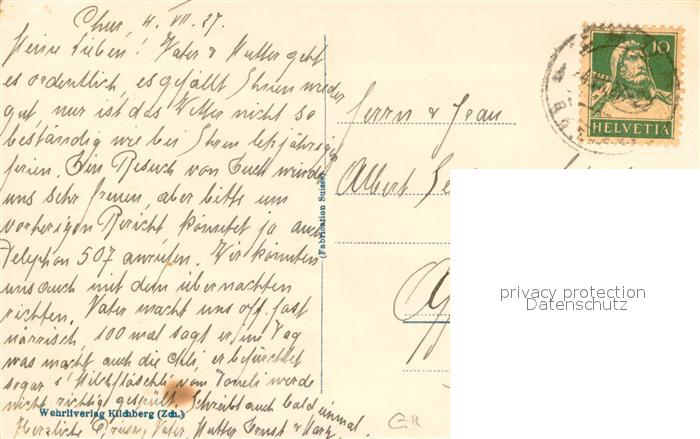 Chur, 4. VII. 27.
Meine Lieben! Vater & Mutter geht
es ordentlich, es gefällt Ihnen wieder
gut, nur ist das Wetter nicht so
beständig wie bei Ihren letztjährigen
Ferien. Ein Besuch von Euch würde
uns sehr freuen, aber bitte um
vorherigen Bericht könntet ja auch
Telephon 507 anrufen. Wir könnten
uns auch mit dem übernachten
richten. Vater macht uns oft fast
närrisch, 100 mal sagt er im Tag
was macht auch die, er befürchtet
sogar s' Milchfläschli vom werde
nicht richtig gespült. Schreibt auch bald einmal.
Herzliche Grüsse, Vater, Mutter Ernst &
Wehrliverlag Kilchberg (Zch.)
(Fabrication Suisse)
Herrn & Frau
Albert
10
HELVETIA
privacy protection
Datenschutz
GR